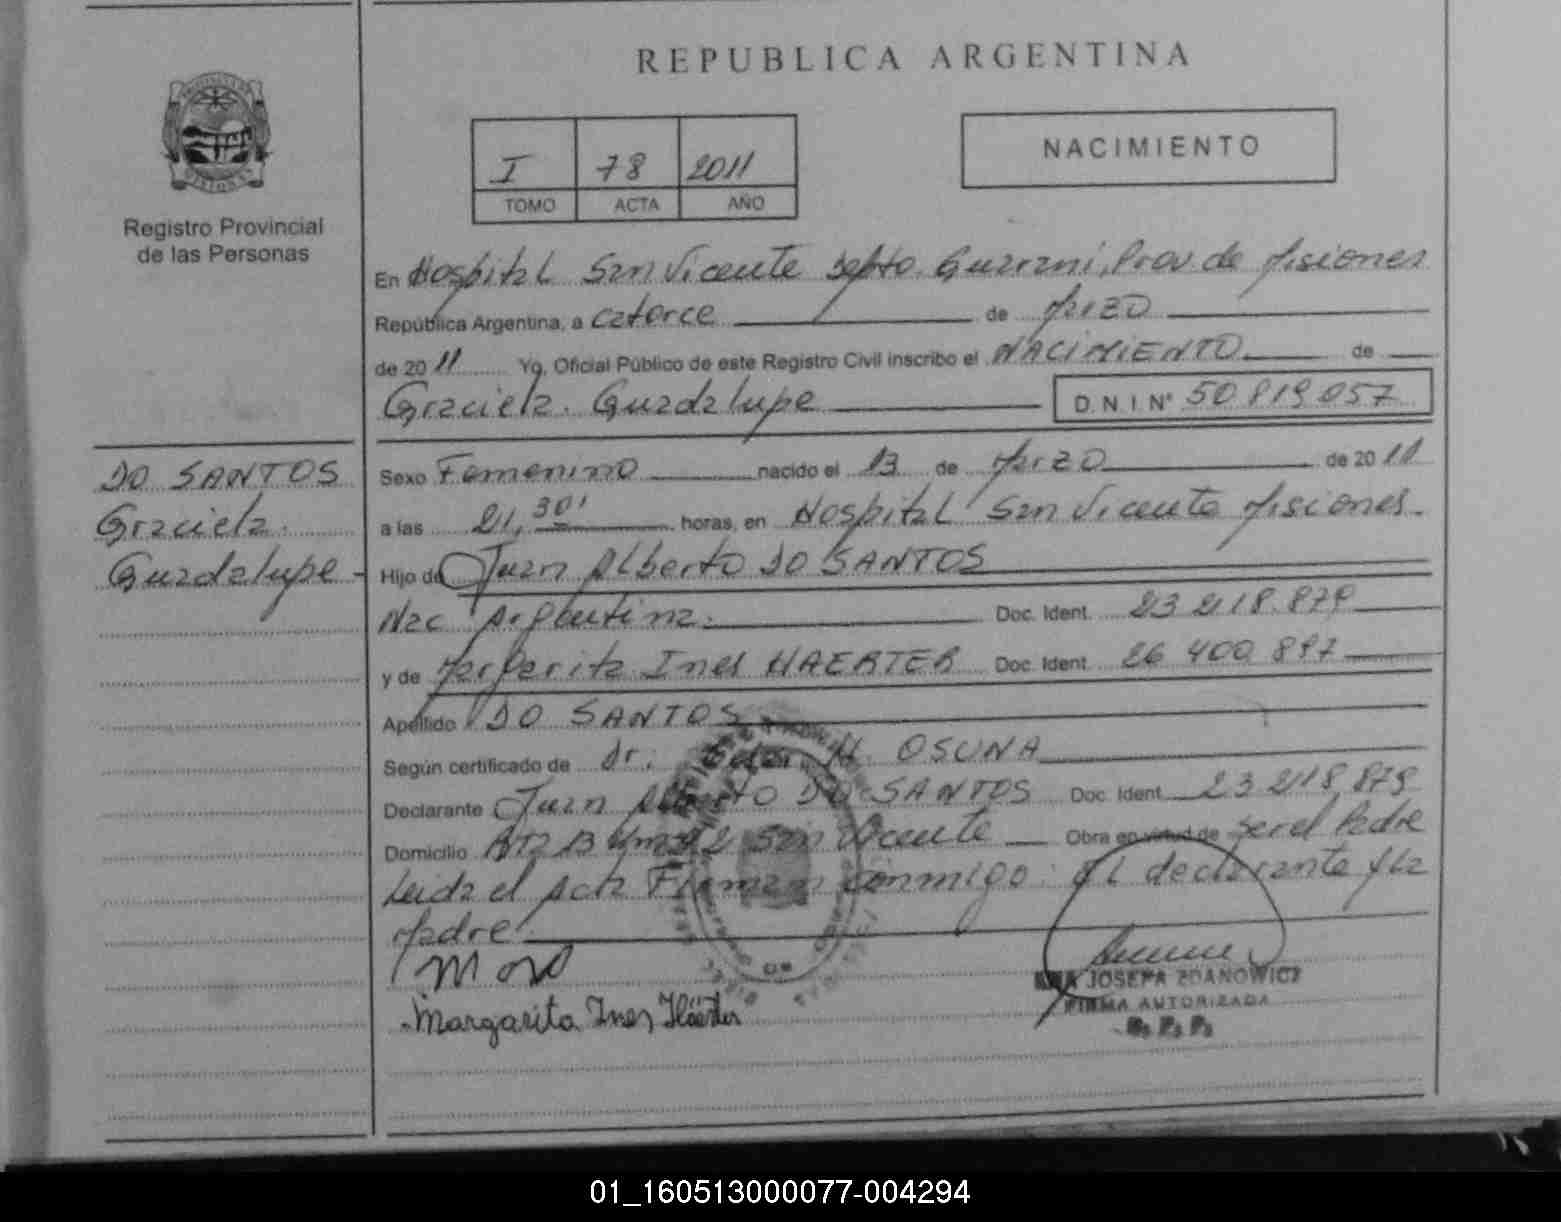 REPUBLICA ARGENTINA
I 78 2011
TOMO ACTA AÑO
NACIMIENTO
Registro Provincial
de las Personas
En Hospital San Vicente Depto. Guarani, Prov de Misiones
República Argentina, a catorce de Marzo
de 2011 Yo, Oficial Público de este Registro Civil inscribo el NACIMIENTO de
Graciela. Guadalupe D.N.I. Nº 50.819.057
DO SANTOS
Graciela.
Guadalupe -
Sexo Femenino nacido el 13 de Marzo de 2011
a las 21,30' horas, en Hospital San Vicente Misiones.
Hijo de Juan Alberto DO SANTOS
Nac Argentina. Doc. Ident. 23 218.879
y de Margarita Ines HAERTER Doc. Ident. 26 400.897
Apellido DO SANTOS
Según certificado de dr. H. OSUNA
Declarante Juan Alberto DO SANTOS Doc. Ident. 23 218.879
Domicilio San Vicente Obra en virtud de ser el Padre
Leida el acta Firman conmigo: El declarante y la
Madre.
Margarita Ines Häerter
JOSEFA ZDANOWICZ
FIRMA AUTORIZADA
R. P. P.
01_160513000077-004294